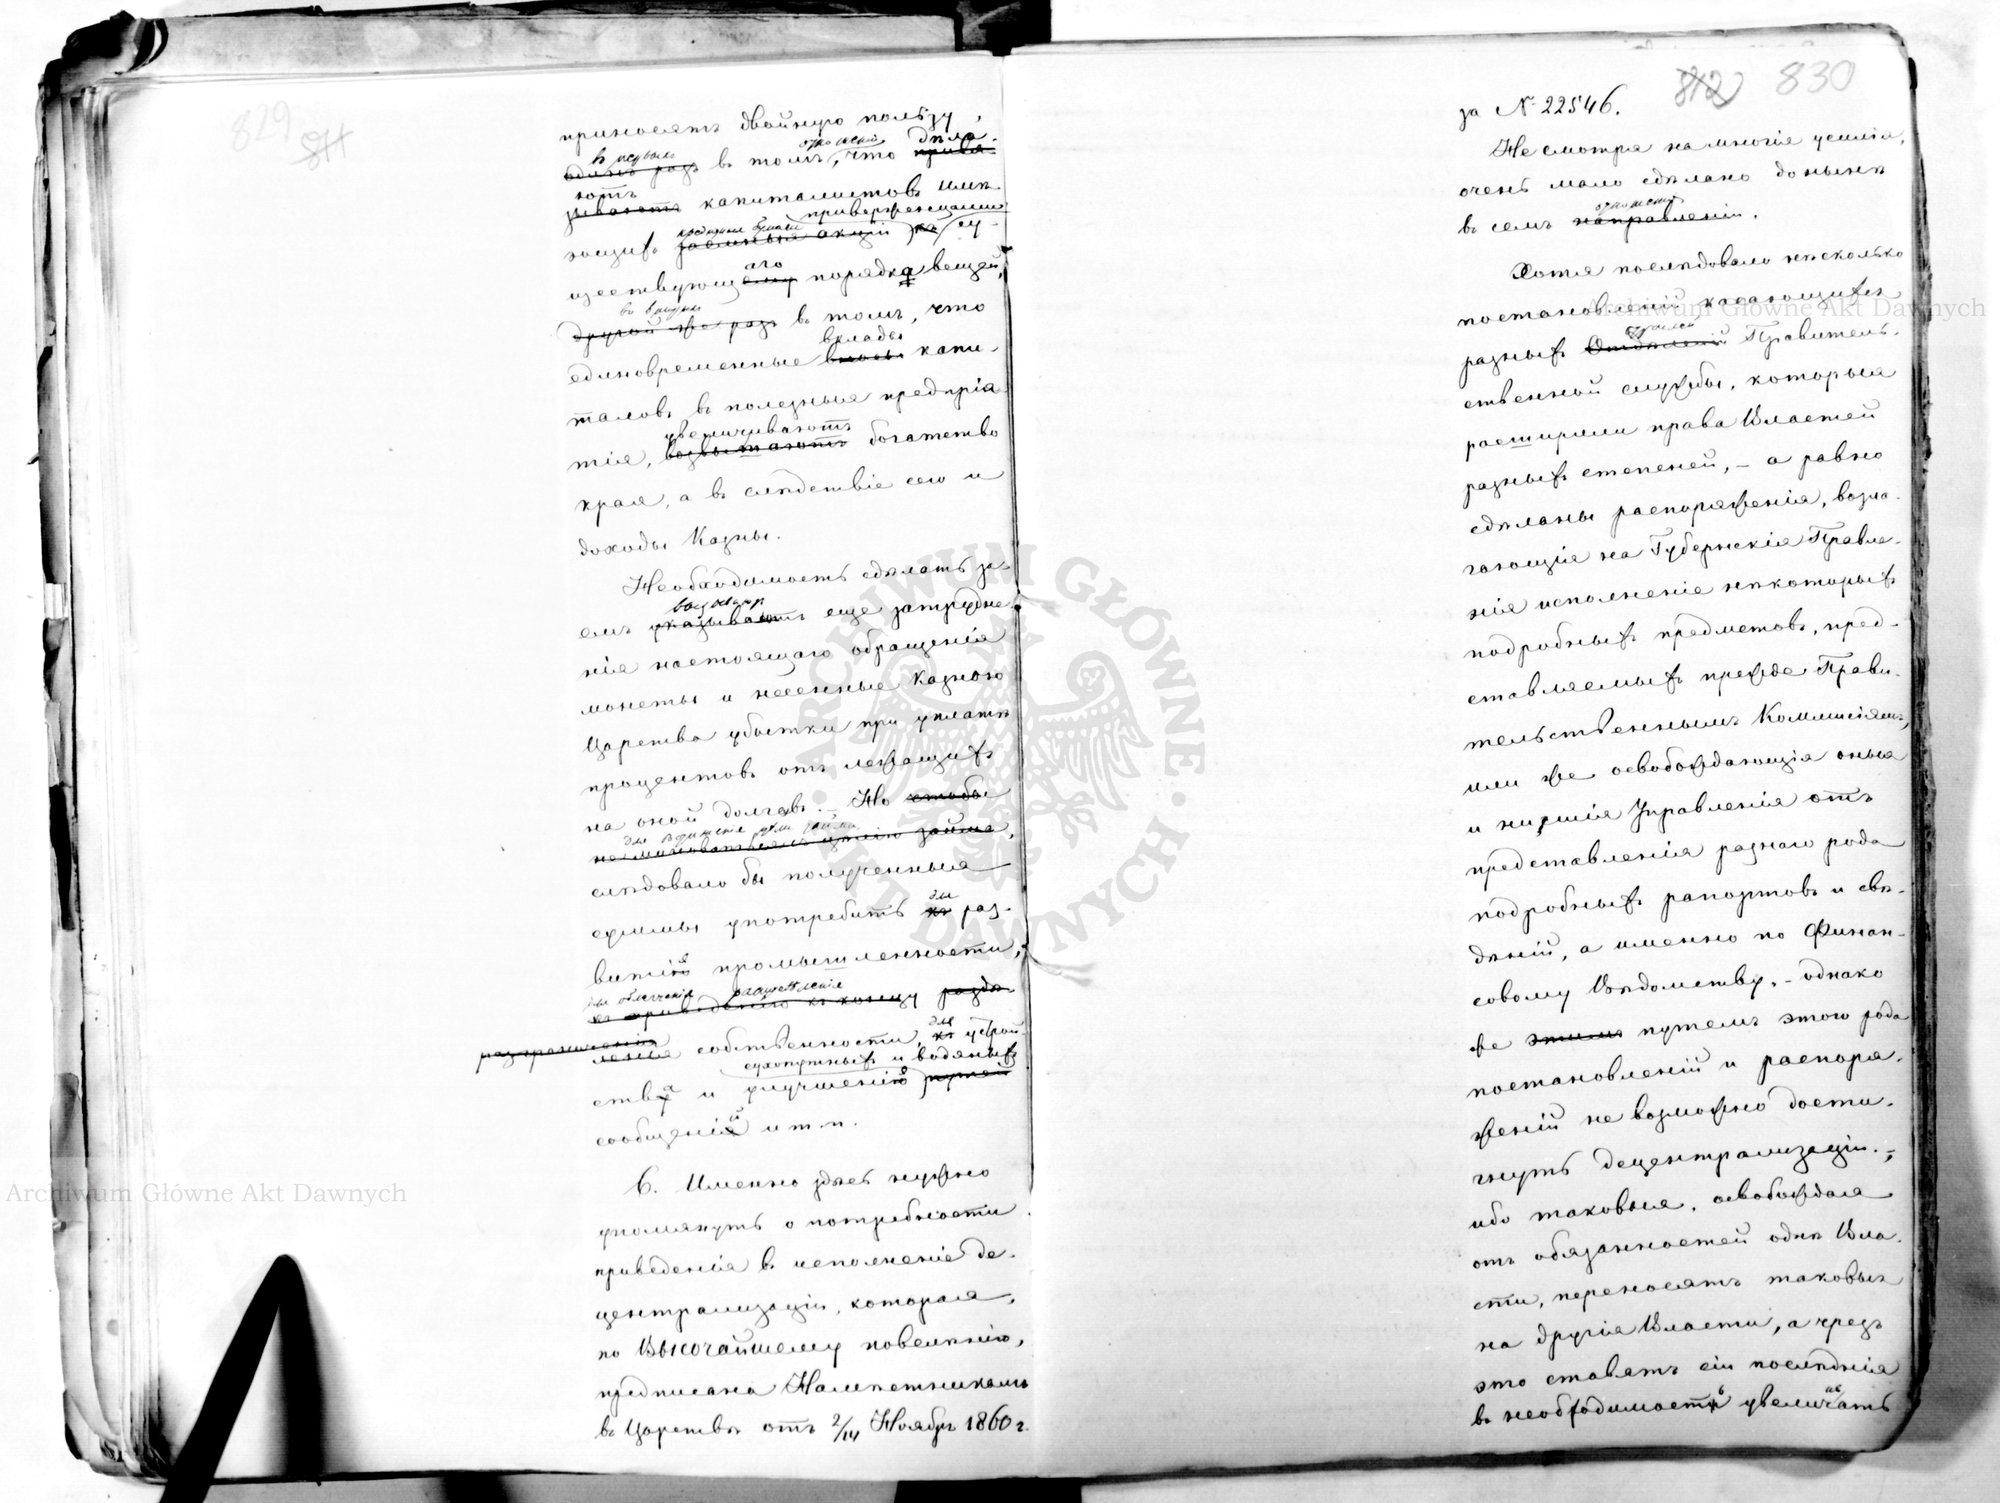 829
811
приносятъ двойную пользу,
въ первыхъ отношеніи дѣла-
одинъ разъ въ томъ, что привя-
ютъ
зываютъ капиталистовъ имѣ-
приверженцами
ющихъ кредитныя бумаги заемныя акціи къ су-
аго
ществующему порядка вещей,
во вторыхъ
другой же разъ въ томъ, что
вклады
единовременные взносы капи-
таловъ въ полезныя предпрія-
увеличиваютъ
тія, возвышаютъ богатство
края, а въ слѣдствіе сего и
доходы Казны.
Необходимость сдѣлать за-
емъ указываютъ еще затрудне-
нія настоящаго обращенія
монеты и несенные Казною
Царства убытки при уплатѣ
процентовъ отъ лежащихъ
на оной долговъ. – Но чтобы
не миноваться съ цѣлію займа,
слѣдовало бы полученныя
для
суммы употребить къ раз-
витія промышленности,
для облегченія
къ приведенію къ концу разде-
разграниченія
ленія собственности, для къ устрой-
сухопутныхъ и водяныхъ
ства и улучшенію путей
сообщеній и т. п.
6. Именно здѣсь нужно
упомянуть о потребности
приведенія въ исполненіе де-
централизаціи, которая,
по Высочайшему повелѣнію,
предписана Намѣстникомъ
въ Царствѣ отъ 2/14 Ноября 1860 г.
812 830
за № 22546.
Не смотря на многія усилія,
очень мало сдѣлано донынѣ
отношеніи
въ семъ направленіи.
Хотя послѣдовало нѣсколько
постановленій касающихся
отраслей
разныхъ Отдѣленій Правитель-
ственной службы, которыя
расширили права Властей
разныхъ степеней, – а равно
сдѣланы распоряженія, возла-
гающія на Губернскія Правле-
нія исполненіе нѣкоторыхъ
подробныхъ предметовъ, пред-
ставляемыхъ прежде Прави-
тельственнымъ Коммисіямъ,
или же освобождающія оныя
и низшія Управленія отъ
представленія разнаго рода
подробныхъ рапортовъ и свѣ-
дѣній, а именно по Финан-
совому Вѣдомству, – однако
же этимъ путемъ этого рода
постановленій и распоря-
женій не возможно дости-
гнуть децентрализаціи;
ибо таковыя, освобождая
отъ обязанностей однѣ Вла-
сти, переносятъ таковыя
на другія Власти, а чрезъ
это ставятъ сіи послѣднія
въ необходимость увеличивать
Archiwum Główne Akt Dawnych
Archiwum Główne Akt Dawnych
ARCHIWUM GŁÓWNE · AKT DAWNYCH ·